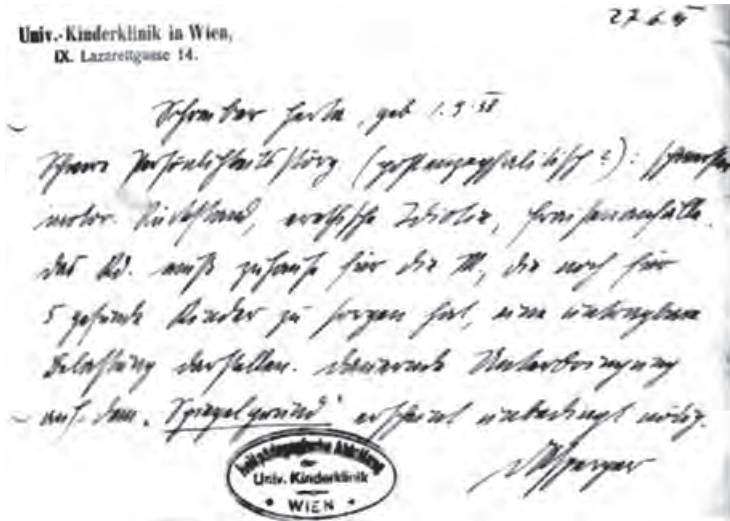 27. 6. 41
Univ.-Kinderklinik in Wien,
IX. Lazarettgasse 14.
Schreiber Herta, geb 1. 9. 38
Schwere Persönlichkeitsstörg (postenzephalitisch?): schwerster
motor. Rückstand, erethische Idiotie, Fraisenanfälle.
Das Kd. muß zuhause für die M., die noch für
5 gesunde Kinder zu sorgen hat, eine untragbare
Belastung darstellen. Dauernde Unterbringung
auf dem „Spiegelgrund“ erscheint unbedingt nötig.
DAsperger
Heilpädagogische Abteilung
der
Univ. Kinderklinik
WIEN